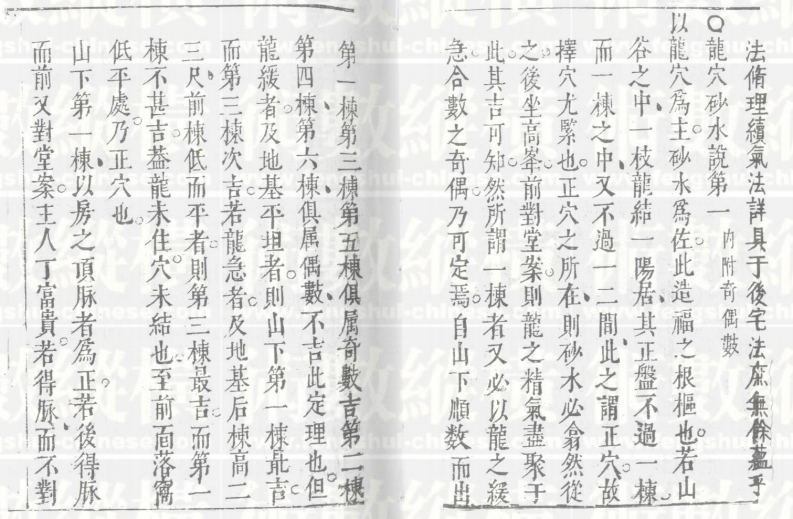 法脩理續氣法詳具于後宅法庶無餘蘊乎
○龍穴砂水說第一 內附奇偶數
以龍穴為主砂水爲佐此造福之根樞也若山
谷之中一枝龍結一陽居其正盤不過一棟
而一棟之中又不過一二間此之謂正穴故
擇穴尤緊也正穴之所在則砂水必翕然從
之後坐高峯前對堂案則龍之精氣盡聚于
此其吉可知然所謂一棟者又必以龍之緩
急合數之奇偶乃可定焉自山下順数而出
第一棟第三棟第五棟俱属奇數吉第二棟
第四棟第六棟俱属偶數不吉此定理也但
龍緩者及地基平坦者則山下第一棟最吉
而第三棟次吉若龍急者及地基后棟高二
三尺前棟低而平者則第三棟最吉而第一
棟不甚吉葢龍未住穴未結也至前面落窩
低平處乃正穴也
山下第一棟以房之頂脉者為正若後得脉
而前又對堂案主人丁富貴若得脉而不對
www.fengshui-chinese.com
術數縱橫